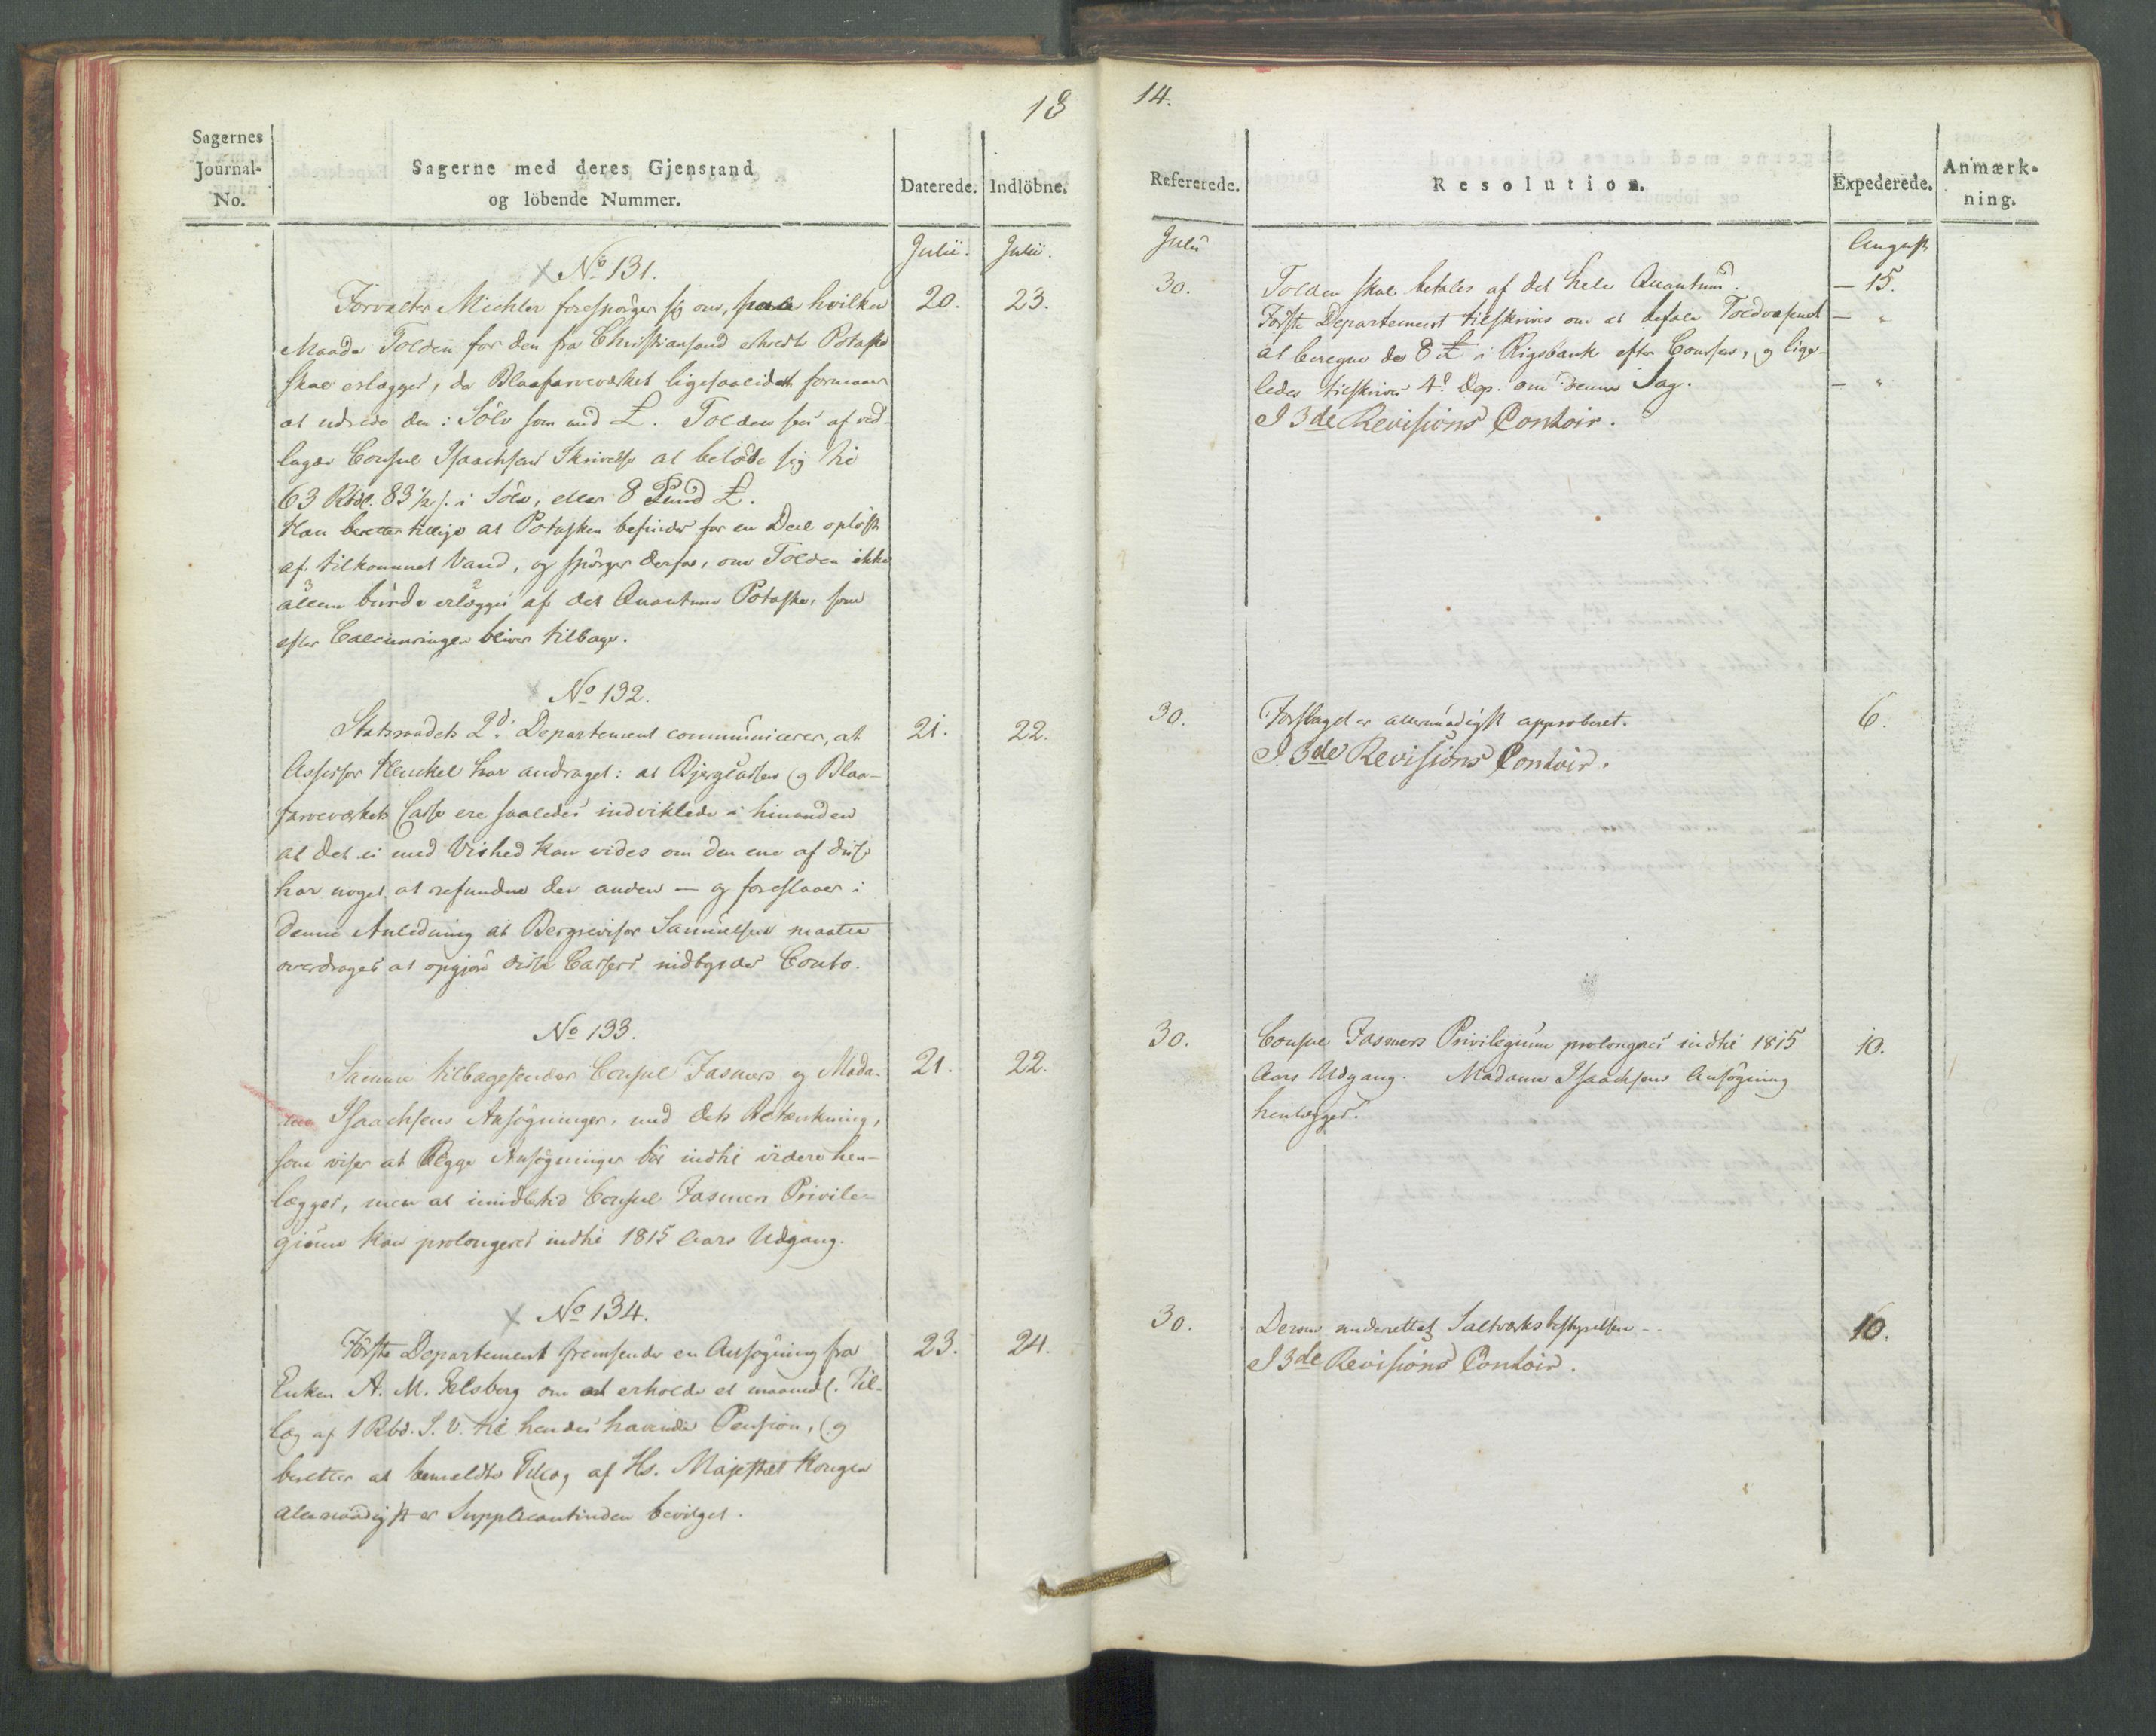 13
Sagernes
Journal-
No.
Sagerne med deres Gjenstand
og löbende Nummer.
Daterede.
Indlöbne.
Julii.
Julii.
No 131.
Forvalter Michler forespörger sig om, paa hvilken
20.
23.
Maade Tolden for den fra Christiansand Potaske
skal erlægges, da Blaafarveværket ligesaalidet formaaer
at udrede den i Sölv som med £. Tolden sees af ved-
lagde Consul Isaachsens Skrivelse at belöbe sig til
63 Rbd. 83 1/2 s. i Sölv, eller 8 Pund £.
Han beretter tillige at Potasken befindes for en Deel oplöst
af tilkommet Vand, og spörger derfor, om Tolden ikke
3 2
alleen burde erlægges af det Quantum Potaske, som
efter Calcineringen bliver tilbage.
No 132.
Statsraadets 2d. Departement communicerer, at
21.
22.
Assessor Henckel har andraget: at Bjergcassen og Blaa-
farveværkets Casse ere saaledes indviklede i hinanden
at det ei med Vished kan vides om den ene af disse
har noget at refundere den anden — og foreslaaer i
denne Anledning at Bergrevisor Samuelsen maatte
overdrages at opgjöre disse Cassers Conto.
No 133.
Samme tilbagesender Consul Jasmers og Mada-
21.
22.
me Isaachsens Ansögninger, med dets Betænkning,
som viser at Begge Ansögninger bör indtil videre hen-
lægges, men at imidlertid Consul Jasmers Privile-
gium kan prolongeres indtil 1815 Aars Udgang.
No 134.
Förste Departement fremsender en Ansögning fra
23.
24.
Enken A. M. Elsberg om at erholde et maanedl. Til-
læg af 1 Rbd. S. V. til hendes havende Pension, og
beretter at bemeldte Tillæg af Hs. Majestæt Kongen
allernaadigst er Supplicantinden bevilget.
14.
Refererede.
Resolution.
Expederede.
Anmærk-
ning.
Julii
August
30.
Tolden skal betales af det hele Quantum.
— 15.
Förste Departement tilskrives om at befale Toldvæsenet
— "
at beregne de 8 £ i Rigsbank efter Coursen, og lige-
ledes tilskrives 4de Dep. om denne Sag.
— "
I 3de Revisions Contoir.
30.
Forslaget er allernaadigst approberet.
6.
I 3de Revisions Contoir.
30.
Consul Jasmers Privilegium prolongeres indtil 1815
10.
Aars Udgang. Madame Isaachsens Ansögning
henlægges.
30.
Derom underrettes Saltværksbestyrelsen —
10.
I 3de Revisions Contoir.